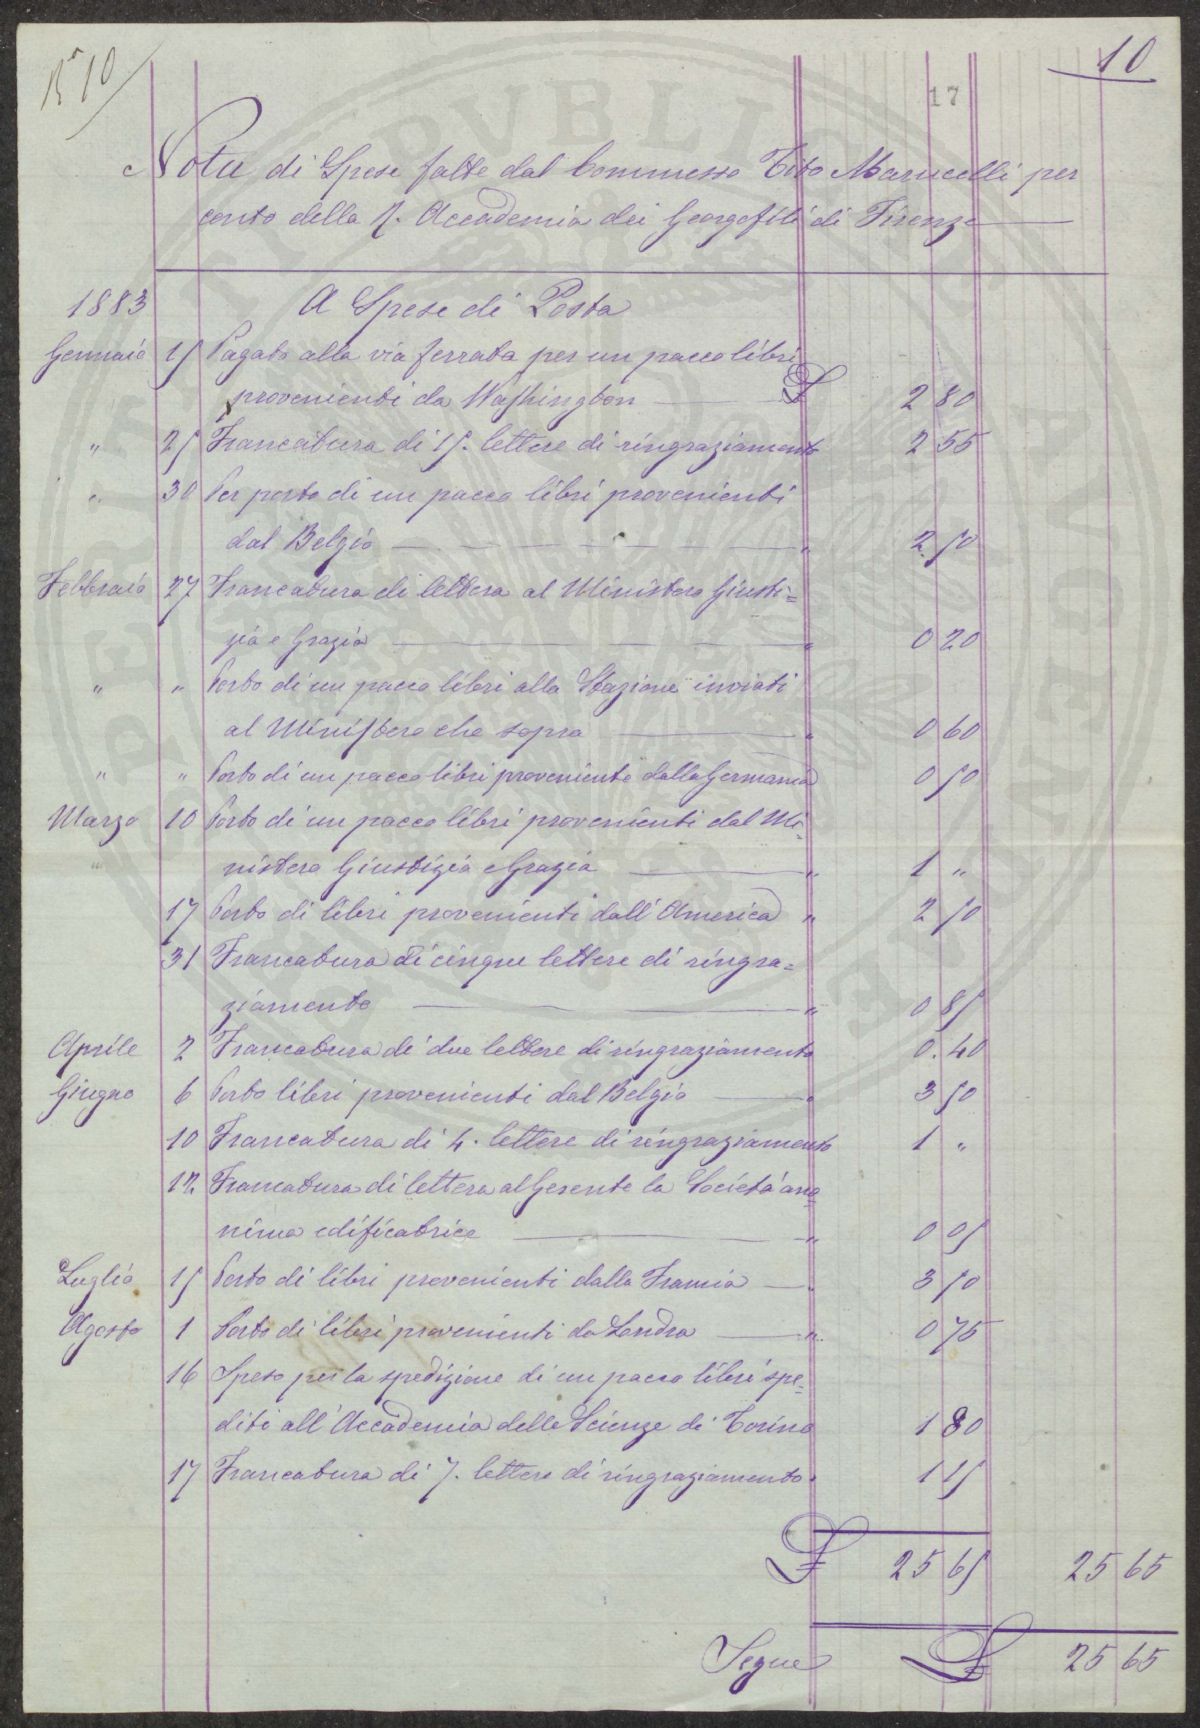 N° 10
10
17
Nota di Spese fatte dal Commesso Tito Marucelli per
conto della R. Accademia dei Georgofili di Firenze
1883 A Spese di Posta
Gennaio 15 Pagato alla via ferrata per un pacco libri
provenienti da Washington £ 2 80
" 25 Francatura di 15. lettere di ringraziamento 2 55
" 30 Per porto di un pacco libri provenienti
dal Belgio " 2. 50
Febbraio 27 Francatura di lettera al Ministero Giusti=
zia e Grazia " 0 20
" " Porto di un pacco libri alla Stazione inviati
al Ministero che sopra " 0 60
" " Porto di un pacco libri proveniente dalla Germania 0 50
Marzo 10 Porto di un pacco libri provenienti dal Mi=
nistero Giustizia e Grazia " 1 "
17 Porto di libri provenienti dall'America " 2 50
31 Francatura di cinque lettere di ringra=
ziamento " 0 85
Aprile 2 Francatura di due lettere di ringraziamento 0. 40
Giugno 6 Porto libri provenienti dal Belgio " 3 50
10 Francatura di 4. lettere di ringraziamento 1 "
12. Francatura di lettera al Gerente la Società ano=
nima edificatrice " 0 05
Luglio 15 Porto di libri provenienti dalla Francia " 3 50
Agosto 1 Porto di libri provenienti da Londra " 0 75
16 Speso per la spedizione di un pacco libri spe=
diti all'Accademia delle Scienze di Torino 1 80
17 Francatura di 7. lettere di ringraziamento " 1 15
£ 25 65 25 65
Segue £ 25 65